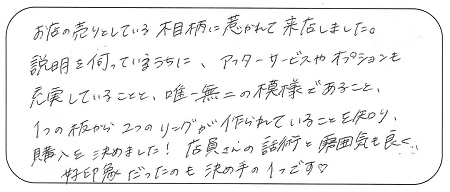 お店の売りとしている木目柄に惹かれて来店しました。
説明を伺っているうちに、アフターサービスやオプションも
充実していることと、唯一無二の模様であること、
1つの板から2つのリングが作られていることを知り、
購入を決めました！店員さんの話術と雰囲気も良く、
好印象だったのも決め手の1つです♡